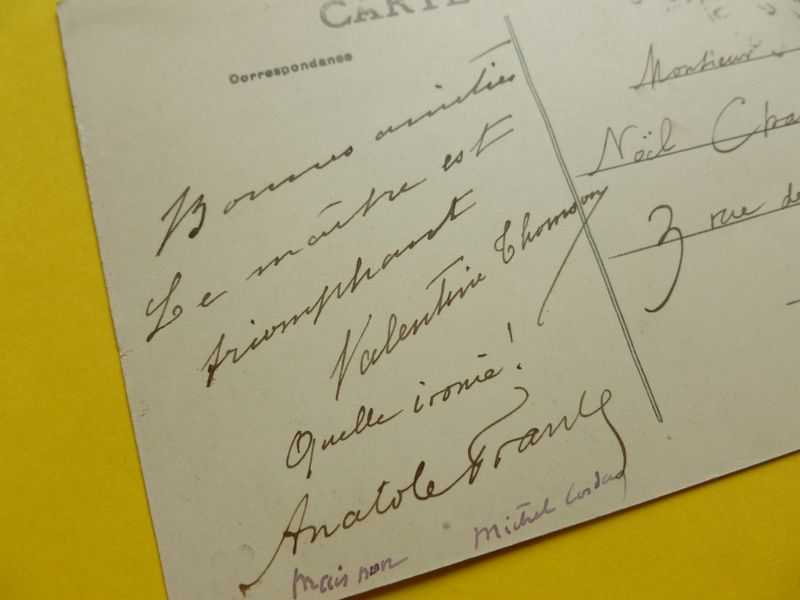 CARTE
Correspondance
Bonnes amitiés
Le maître est
triomphant
Valentine Thomson
Quelle ironie!
Anatole France
Mais non
Michel Corday
Monsieur
Noël Cha
3 rue de